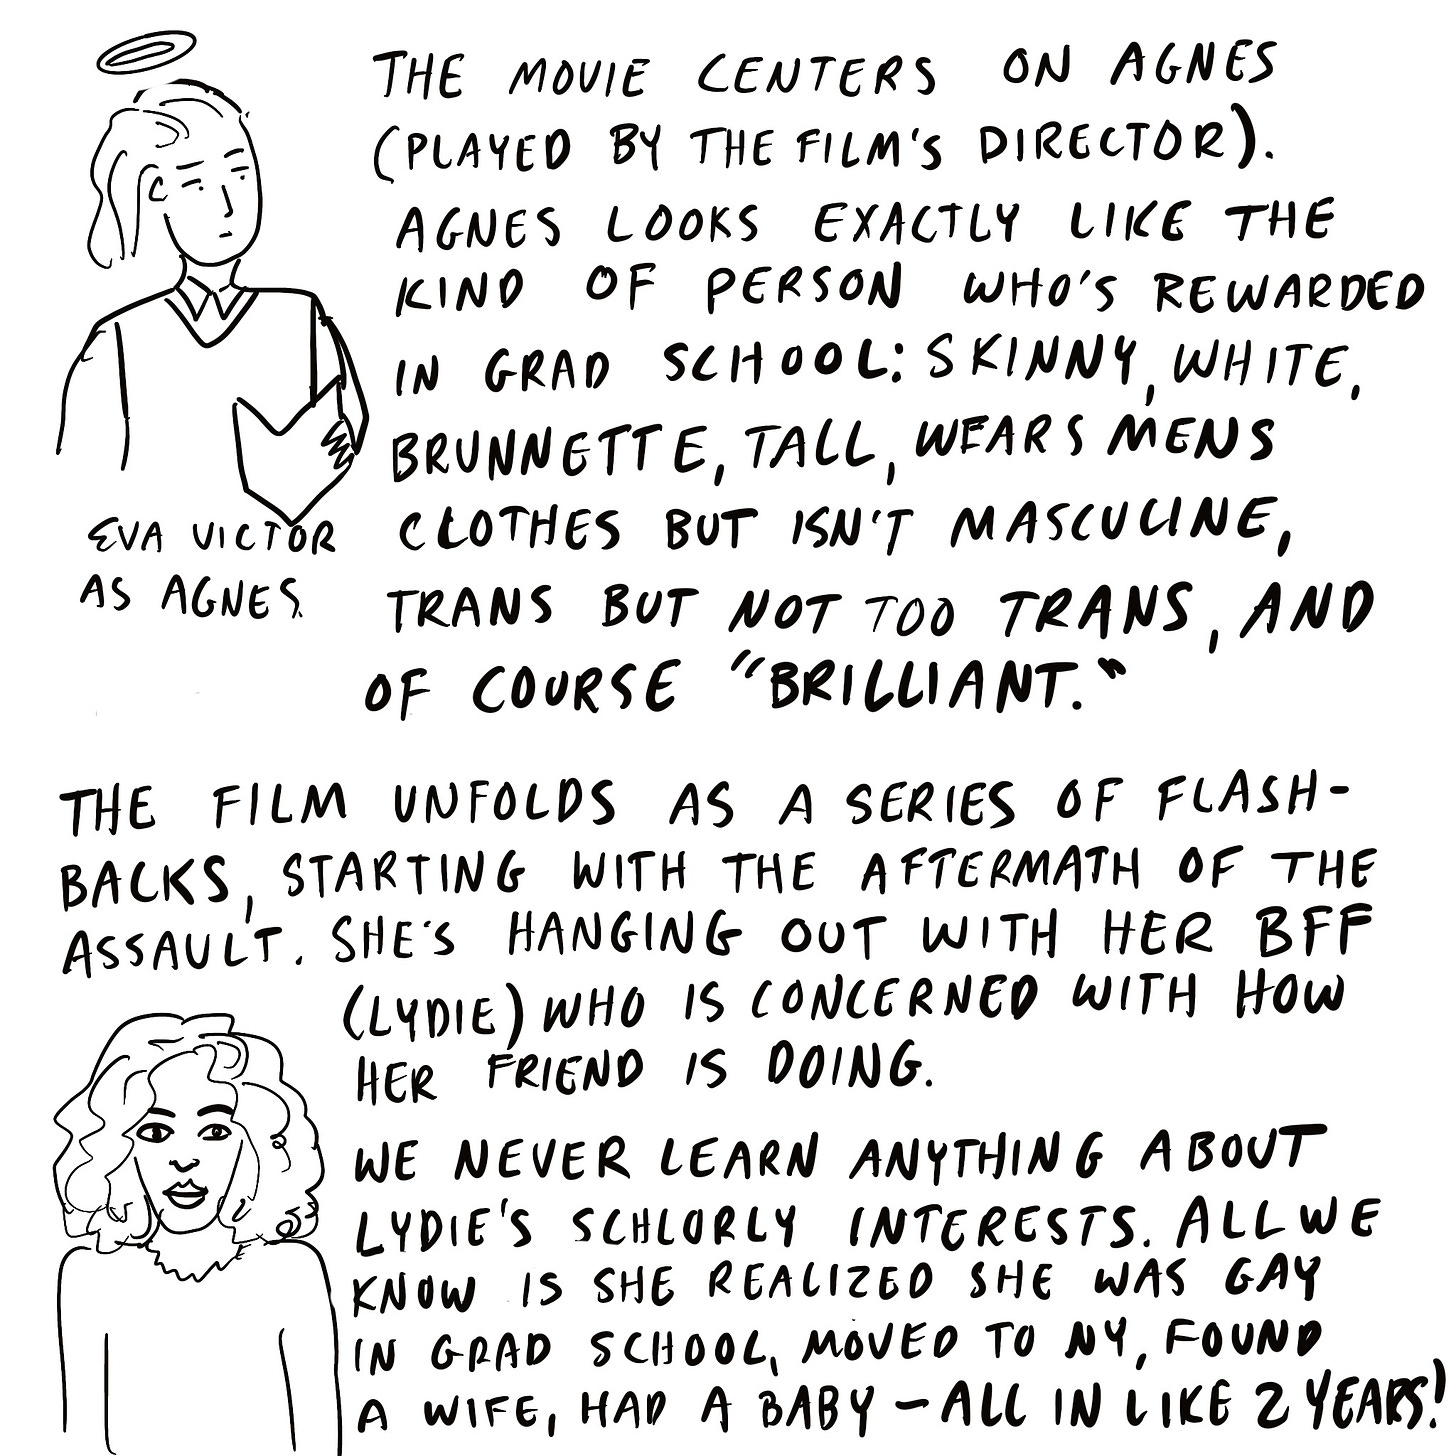 THE MOVIE CENTERS ON AGNES
(PLAYED BY THE FILM'S DIRECTOR).
AGNES LOOKS EXACTLY LIKE THE
KIND OF PERSON WHO'S REWARDED
IN GRAD SCHOOL: SKINNY, WHITE,
BRUNNETTE, TALL, WEARS MENS
CLOTHES BUT ISN'T MASCULINE,
TRANS BUT NOT TOO TRANS, AND
OF COURSE "BRILLIANT."
EVA VICTOR
AS AGNES.
THE FILM UNFOLDS AS A SERIES OF FLASH-
BACKS, STARTING WITH THE AFTERMATH OF THE
ASSAULT. SHE'S HANGING OUT WITH HER BFF
(LYDIE) WHO IS CONCERNED WITH HOW
HER FRIEND IS DOING.
WE NEVER LEARN ANYTHING ABOUT
LYDIE'S SCHLORLY INTERESTS. ALL WE
KNOW IS SHE REALIZED SHE WAS GAY
IN GRAD SCHOOL, MOVED TO NY, FOUND
A WIFE, HAD A BABY – ALL IN LIKE 2 YEARS!